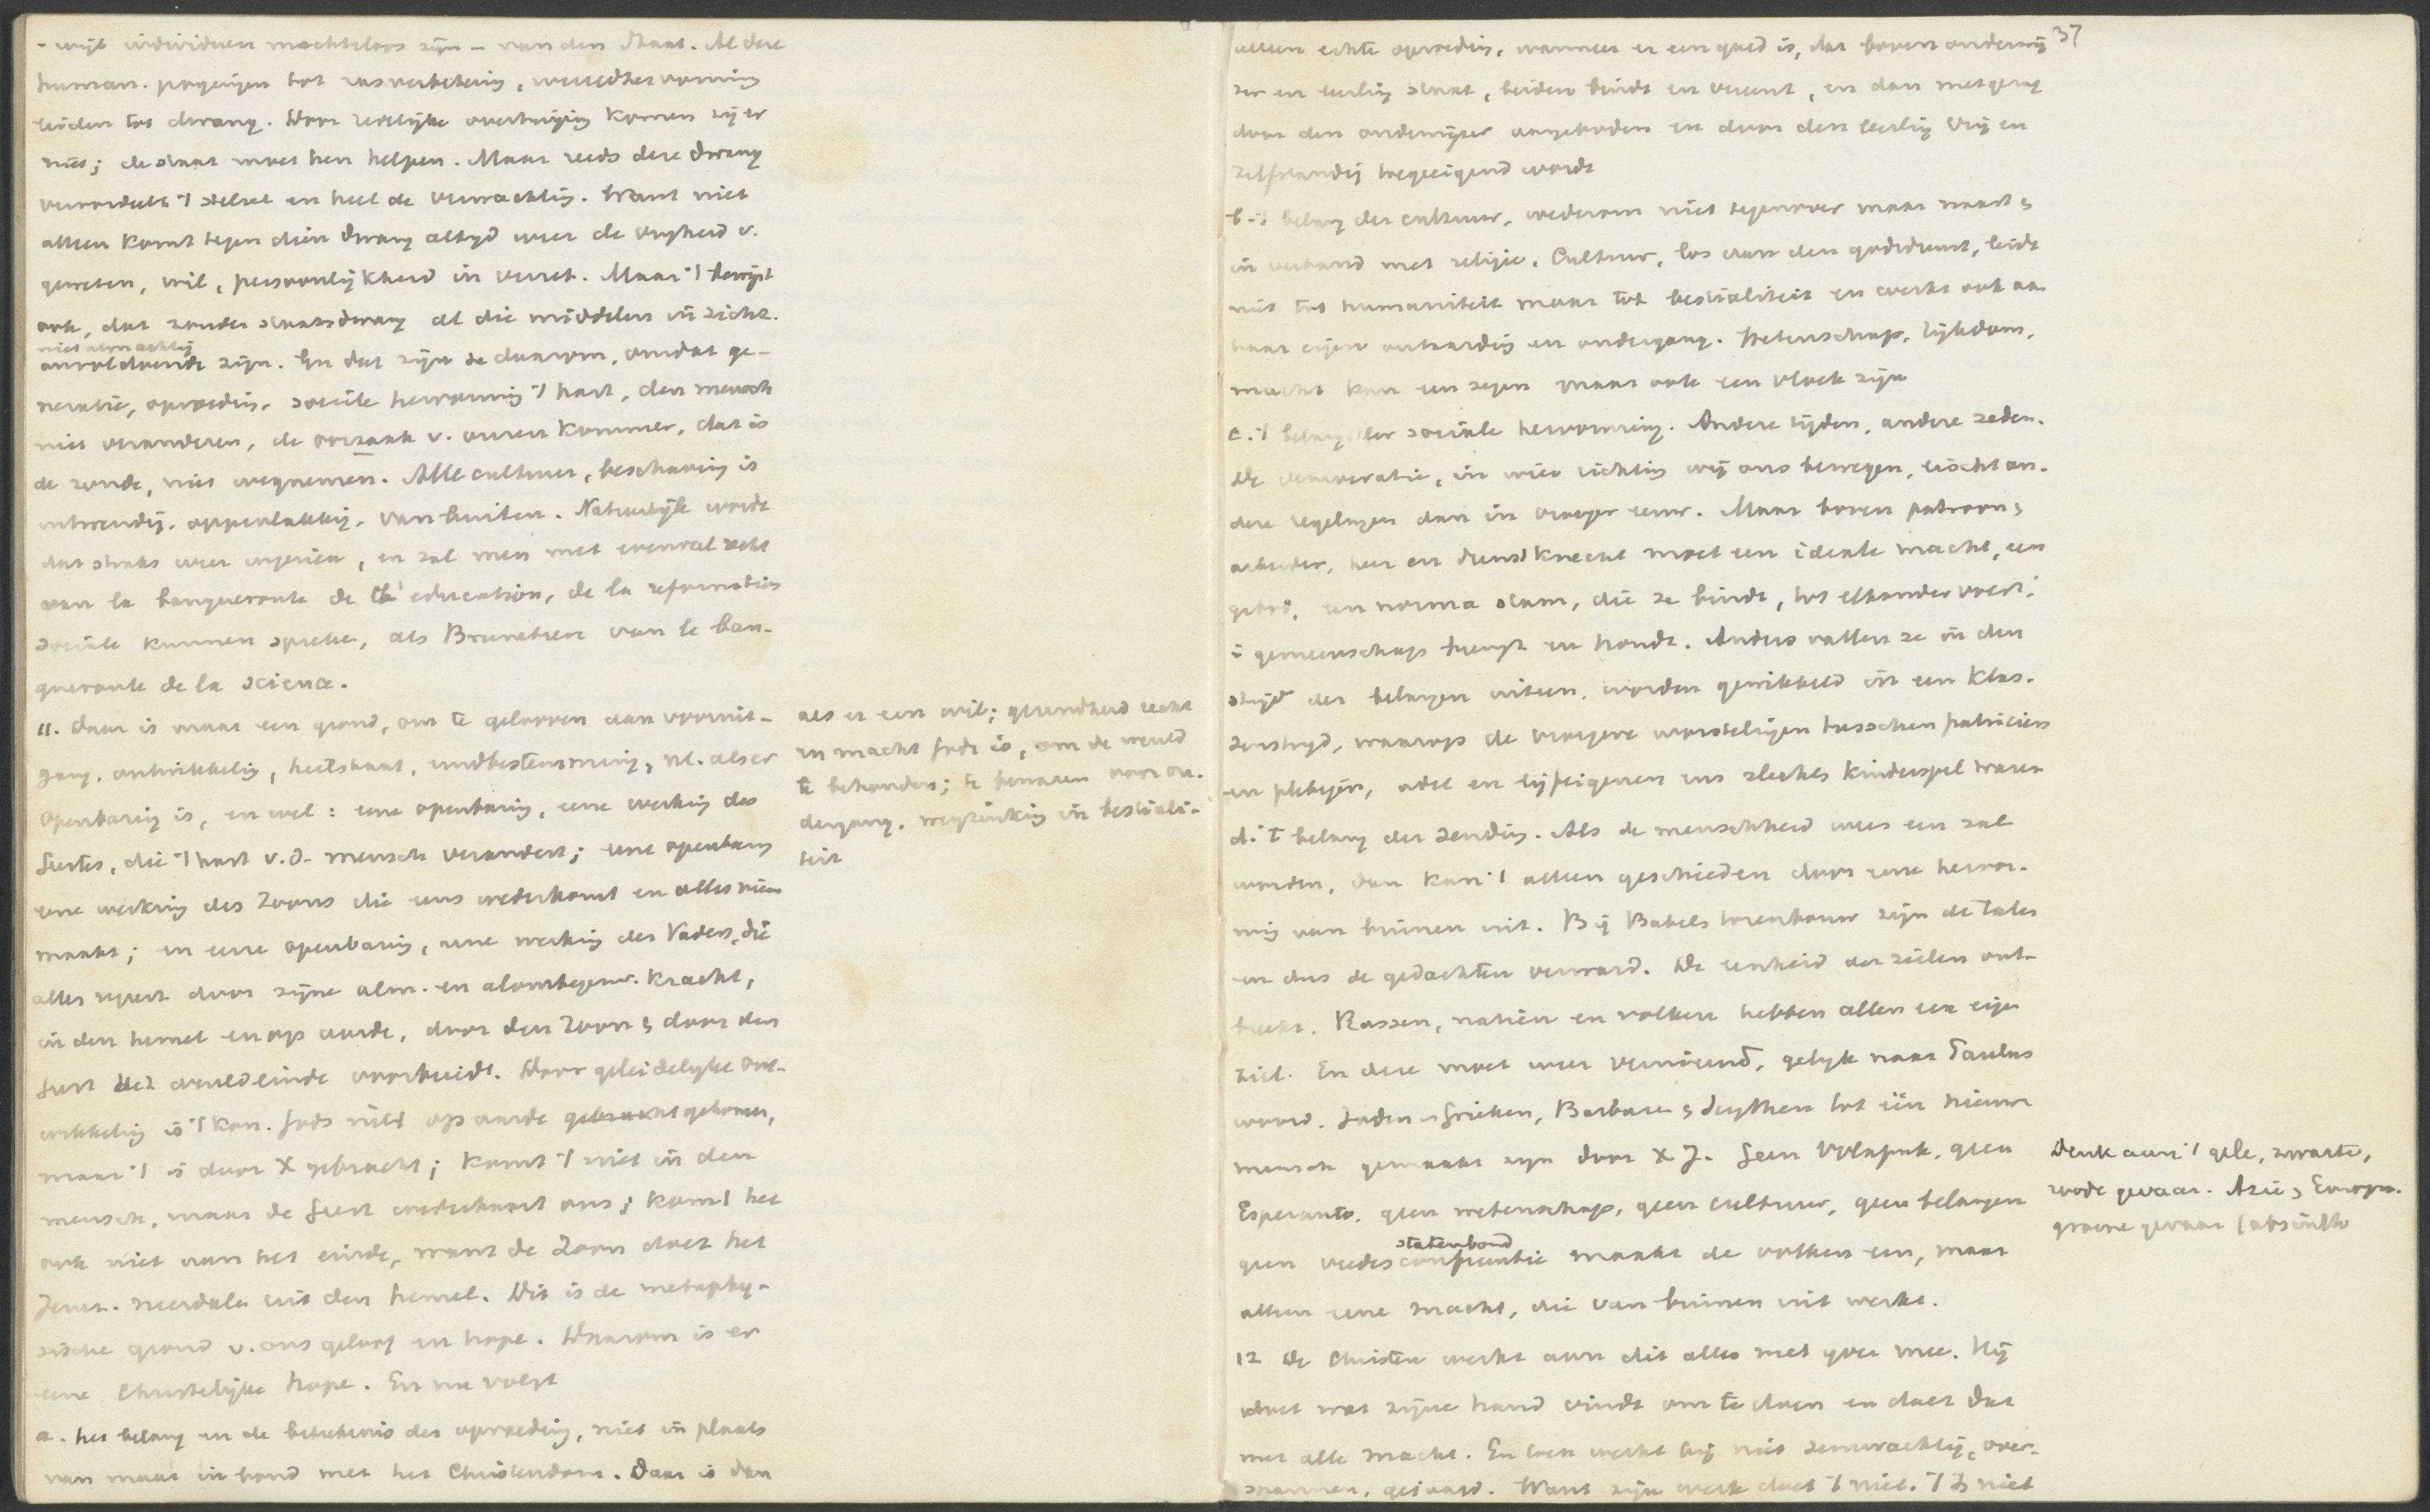 - wijl individuen machteloos zijn - van den Staat. Al deze
human. pogingen tot rasverbetering, wereldhervorming
leiden tot dwang. Door zedelijke overtuiging komen zij er
niet; de staat moet hen helpen. Maar reeds deze dwang
veroordeelt 't stelsel en heel de verwachting. Want niet
alleen komt tegen dien dwang altijd weer de vrijheid v.
geweten, wil, persoonlijkheid in verzet. Maar 't bewijst
ook, dat zonder staatsdwang al die middelen in zichz.
niet almachtig
onvoldoende zijn. En dat zijn ze daarom, omdat ge-
neratie, opvoeding, sociale hervorming 't hart, den mensch
niet veranderen, de oorzaak v. onzen kommer, dat is
de zonde, niet wegnemen. Alle cultuur, beschaving is
uitwendig, oppervlakkig, van buiten. Natuurlijk wordt
dat straks weer ingezien, en zal men met evenveel recht
van la banqueroute de l'education, de la reformation
sociale kunnen spreken, als Brunetiere van le ban-
queroute de la science.
11. Daar is maar een grond, om te gelooven aan vooruit-
gang, ontwikkeling, heilstaat, eindbestemming, nl. als er
Openbaring is, en wel: eene openbaring, eene werking des
Geestes, die 't hart v.d. mensch verandert; eene openbaring
eene werking des Zoons die eens wederkomt en alles nieuw
maakt; en eene openbaring, eene werking des Vaders, die
alles regeert door zijne alm. en alomtegenw. kracht,
in den hemel en op aarde, door den Zoon & door den
Geest het wereldeinde voorbereidt. Door geleidelijke ont-
wikkeling is 't Kon. Gods niet op aarde gebracht gekomen,
maar 't is door X gebracht; komt 't niet in den
mensch, maar de Geest wederbaart ons; komt het
ook niet aan het einde, want de Zoon doet het
Jeruz. neerdalen uit den hemel. Dit is de metaphy-
sische grond v. ons geloof en hope. Daarom is er
eene Christelijke hope. En nu volgt
a. het belang en de beteekenis der opvoeding, niet in plaats
van maar in bond met het Christendom. Daar is dan
als er een wil; gerechtheid
en macht Gods is, om de wereld
te behouden; te bewaren voor on-
dergang, wegzinking in bestiali-
teit
37
alleen echte opvoeding, wanneer er een goed is, dat boven onderwij
zer en leerling staat, beiden bindt en vereent, en dan met gezag
door den onderwijzer aangeboden en door den leerling vrij en
zelfstandig toegeeigend wordt
b. 't belang der cultuur, wederom niet tegenover maar naast &
in verband met religie. Cultuur, los van den godsdienst, leidt
niet tot humaniteit maar tot bestialiteit en werkt ook aan
haar eigen ontaarding en ondergang. Wetenschap, rijkdom,
macht kan een zegen maar ook een vloek zijn
c. 't belang der sociale hervorming. Andere tijden, andere zeden.
De democratie, in wier richting wij ons bewegen, eischt an-
dere regelingen dan in vroeger eeuw. Maar boven patroon &
arbeider, heer en dienstknecht moet een ideale macht, een
gebod, een norma staan, die ze bindt, tot elkander voert,
i gemeenschap brengt en houdt. Anders vallen ze in den
strijd der belangen uiteen, worden gewikkeld in een klas-
senstrijd, waarop de vroegere worstelingen tusschen patriciers
en plebejers, adel en lijfeigenen ens slechts kinderspel waren
d. 't belang der Zending. Als de menschheid weer een zal
worden, dan kan 't alleen geschieden door eene hervor-
ming van binnen uit. Bij Babels torenbouw zijn de talen
en dus de gedachten verward. De eenheid der zielen ont-
breekt. Rassen, natien en volken hebben allen een eigen
ziel. En deze moet weer vernieuwd, gelijk naar Paulus
woord. Joden & Grieken, Barbaren & Scythen tot één nieuwen
mensch gemaakt zijn door X J. Geen Volapuk, geen
Esperanto, geen wetenschap, geen cultuur, geen belangen
statenbond
geen vredesconferentie maakt de volken een, maar
alleen eene macht, die van binnen uit werkt.
Denk aan 't gele, zwarte,
roode gevaar. Azie & Europa.
groene gevaar (absinth
12 De Christen werkt aan dit alles met ijver mee. Hij
doet wat zijne hand vindt om te doen en doet dat
met alle macht. En toch werkt hij niet zenuwachtig, over-
spannen, gejaagd. Want zijn werk doet 't niet. 't Is niet